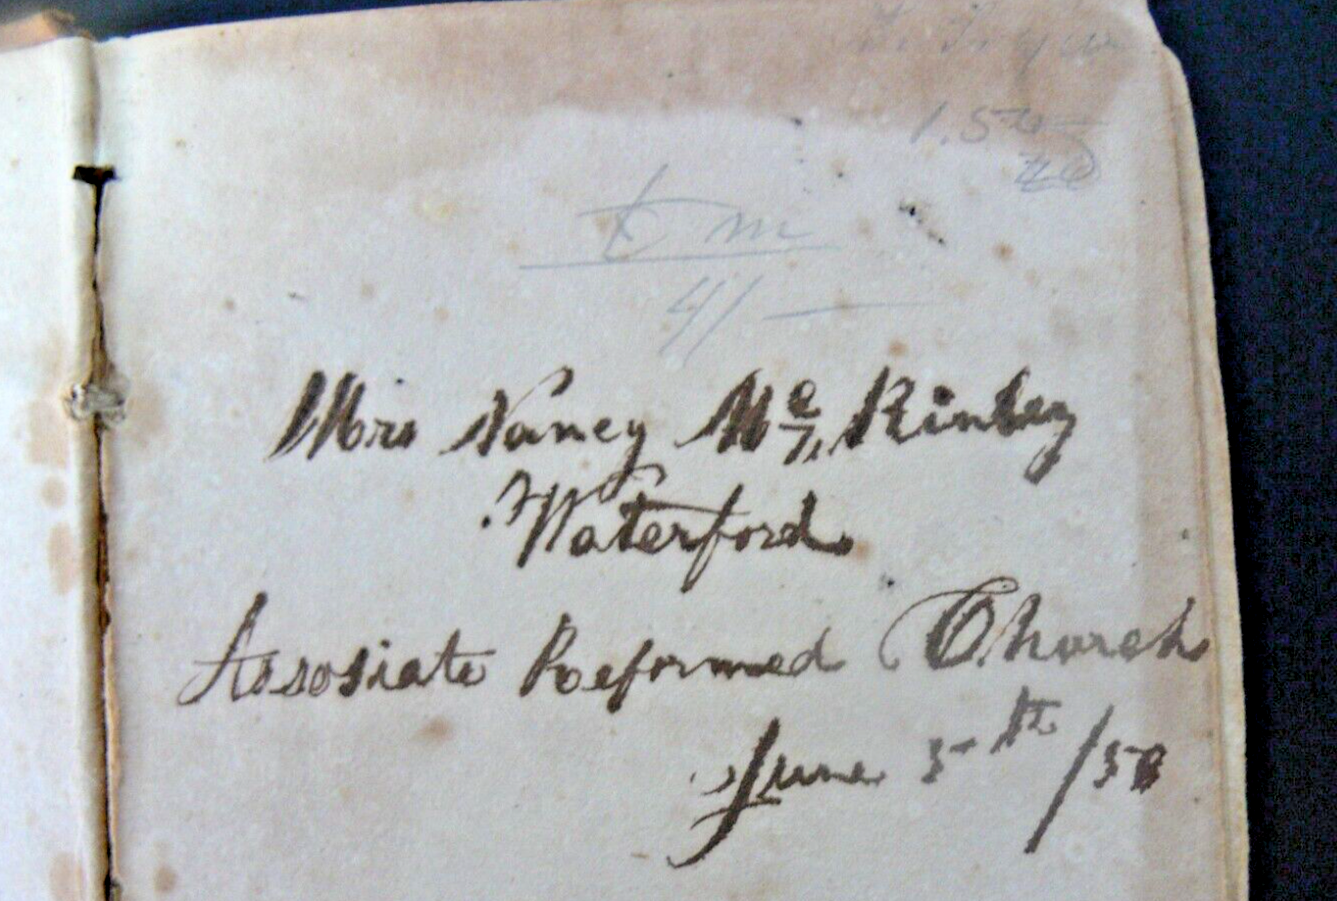 1.50
41 —
Mrs Nancy Mc Kinley
Waterford
Assosiate Reformed Church
June 5th /50